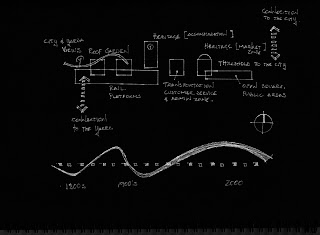 CONNECTION
TO THE CITY
CITY &
VIEWS
ROOF GARDEN
HERITAGE [ACCOMMODATION]
HERITAGE [MARKET]
THRESHOLD TO THE CITY
RAIL
PLATFORMS
TRANSPORTATION
CUSTOMER SERVICE
& ADMIN ZONE.
OPEN SQUARE,
PUBLIC AREAS
CONNECTION
TO THE
1800's
1900's
2000